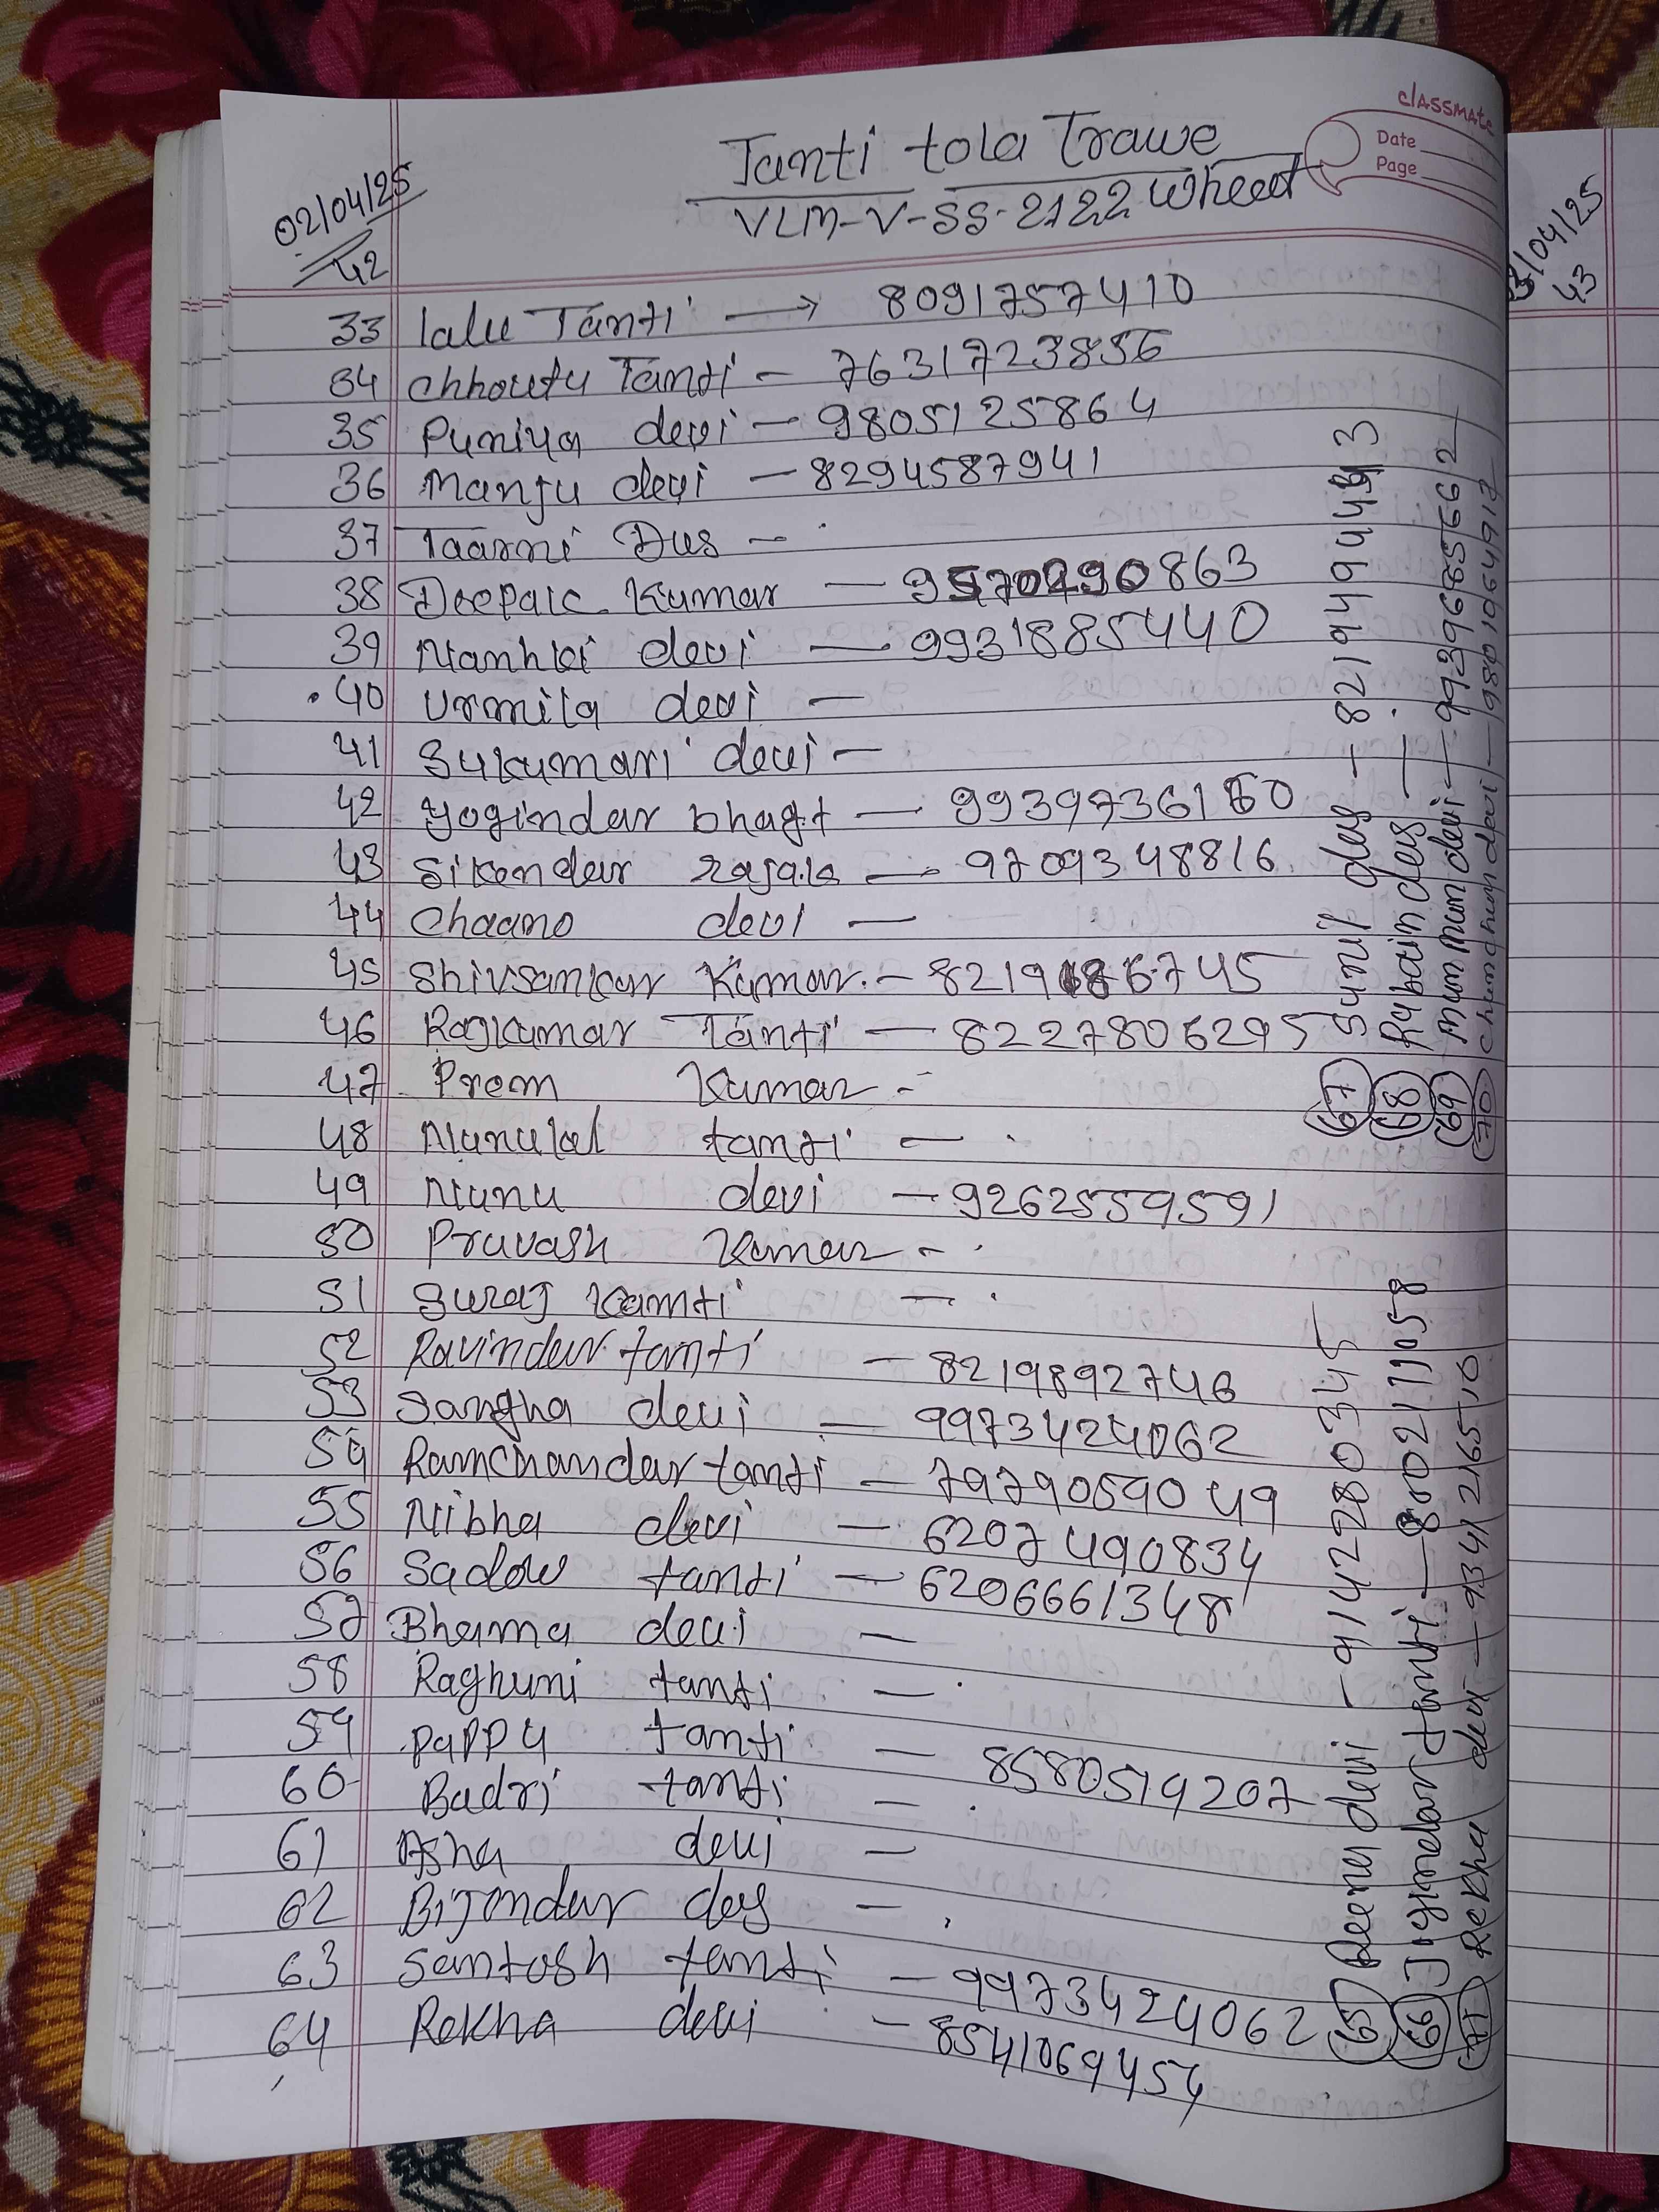 classmate
Date
Page
02/04/25
42
Tanti tola Trawe
VLM-V-SS-2122 Wheat
33 lalu Tanti → 8091757410
34 Chhoutu Tanti - 7631723856
35 Puniya devi - 9805125864
36 Manju devi - 8294587941
37 Taarni Das -
38 Deepak Kumar - 9570290863
39 Nanhki devi - 9931885440
40 Urmila devi -
41 Sukumari devi -
42 Yogindar bhagt - 9939736160
43 Sikendar rajak - 9709348816
44 Chaano devi -
45 Shivsankar Kumar - 8219186745
46 Rajkumar Tanti - 8227806295
47 Prem Kumar -
48 Nunulal tanti -
49 Nunu devi - 9262559591
50 Pravash Kumar -
51 Suraj Kamti -
52 Ravindar tanti - 8219892746
53 Sangha devi - 9973424062
54 Ramchandar tanti - 7979059049
55 Nibha devi - 6207490834
56 Sadow tanti - 6206661348
57 Bhama devi -
58 Raghuni tanti -
59 Pappu tanti - 8580519207
60 Badri tanti -
61 Asha devi -
62 Bijendar das -
63 Santosh tanti - 9973424062
64 Rekha devi - 8541069454
65 Reena devi - 9142280345
66 Jogindar tanti - 8002111058
71 Rekha devi - 9341216510
67 Sunil das - 8219494493
68 Rubain das -
69 Munmun devi - 9939685662
70 Chunchun devi - 9801064917
/04/25
43